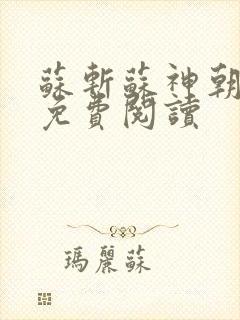 蘇斬蘇神朝
免費閱讀
瑪麗蘇